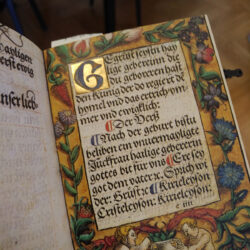 artigen
erst ewig
nser lieb
Egrüest seystu hay
lige gebererinn die
du geboren hast
den Kunig der do regiert de
hymel vnd das ertrich ym
mer vnd ewiklich:
Der Verß
Nach der geburt bistu
beliben ein vnuermaylgte
Juckfraw hailige gebererin
gottes bit für vns Eer sey
got dem vater. Sprich wi
der: Grüst: Kirieleyson:
Cristeleyson: Kirieleyson: